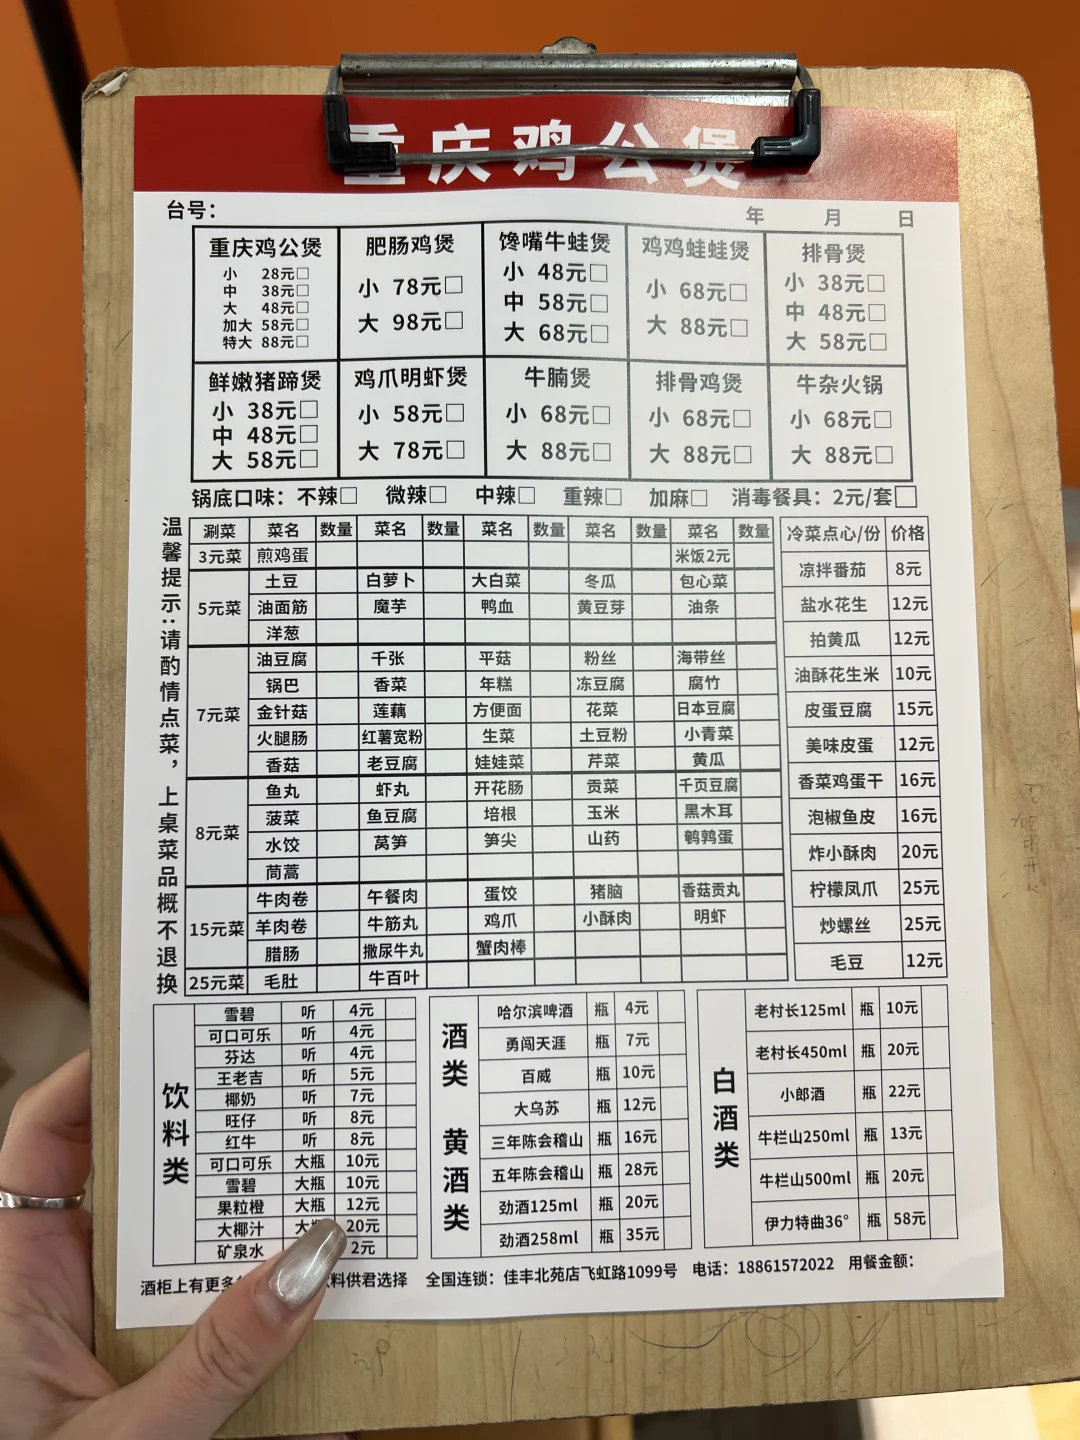 重庆鸡公煲
台号： 年 月 日
重庆鸡公煲
小 28元□
中 38元□
大 48元□
加大 58元□
特大 88元□
肥肠鸡煲
小 78元□
大 98元□
馋嘴牛蛙煲
小 48元□
中 58元□
大 68元□
鸡鸡蛙蛙煲
小 68元□
大 88元□
排骨煲
小 38元□
中 48元□
大 58元□
鲜嫩猪蹄煲
小 38元□
中 48元□
大 58元□
鸡爪明虾煲
小 58元□
大 78元□
牛腩煲
小 68元□
大 88元□
排骨鸡煲
小 68元□
大 88元□
牛杂火锅
小 68元□
大 88元□
锅底口味：不辣□ 微辣□ 中辣□ 重辣□ 加麻□ 消毒餐具：2元/套□
温馨提示：请酌情点菜，上桌菜品概不退换
涮菜 菜名 数量 菜名 数量 菜名 数量 菜名 数量 菜名 数量
3元菜 煎鸡蛋 米饭2元
5元菜 土豆 白萝卜 大白菜 冬瓜 包心菜
油面筋 魔芋 鸭血 黄豆芽 油条
洋葱
7元菜 油豆腐 千张 平菇 粉丝 海带丝
锅巴 香菜 年糕 冻豆腐 腐竹
金针菇 莲藕 方便面 花菜 日本豆腐
火腿肠 红薯宽粉 生菜 土豆粉 小青菜
香菇 老豆腐 娃娃菜 芹菜 黄瓜
8元菜 鱼丸 虾丸 开花肠 贡菜 千页豆腐
菠菜 鱼豆腐 培根 玉米 黑木耳
水饺 莴笋 笋尖 山药 鹌鹑蛋
茼蒿
15元菜 牛肉卷 午餐肉 蛋饺 猪脑 香菇贡丸
羊肉卷 牛筋丸 鸡爪 小酥肉 明虾
腊肠 撒尿牛丸 蟹肉棒
25元菜 毛肚 牛百叶
冷菜点心/份 价格
凉拌番茄 8元
盐水花生 12元
拍黄瓜 12元
油酥花生米 10元
皮蛋豆腐 15元
美味皮蛋 12元
香菜鸡蛋干 16元
泡椒鱼皮 16元
炸小酥肉 20元
柠檬凤爪 25元
炒螺丝 25元
毛豆 12元
饮料类
雪碧 听 4元
可口可乐 听 4元
芬达 听 4元
王老吉 听 5元
椰奶 听 7元
旺仔 听 8元
红牛 听 8元
可口可乐 大瓶 10元
雪碧 大瓶 10元
果粒橙 大瓶 12元
大椰汁 大瓶 20元
矿泉水 2元
酒类 黄酒类
哈尔滨啤酒 瓶 4元
勇闯天涯 瓶 7元
百威 瓶 10元
大乌苏 瓶 12元
三年陈会稽山 瓶 16元
五年陈会稽山 瓶 28元
劲酒125ml 瓶 20元
劲酒258ml 瓶 35元
白酒类
老村长125ml 瓶 10元
老村长450ml 瓶 20元
小郎酒 瓶 22元
牛栏山250ml 瓶 13元
牛栏山500ml 瓶 20元
伊力特曲36° 瓶 58元
酒柜上有更多 料供君选择 全国连锁：佳丰北苑店飞虹路1099号 电话：18861572022 用餐金额：